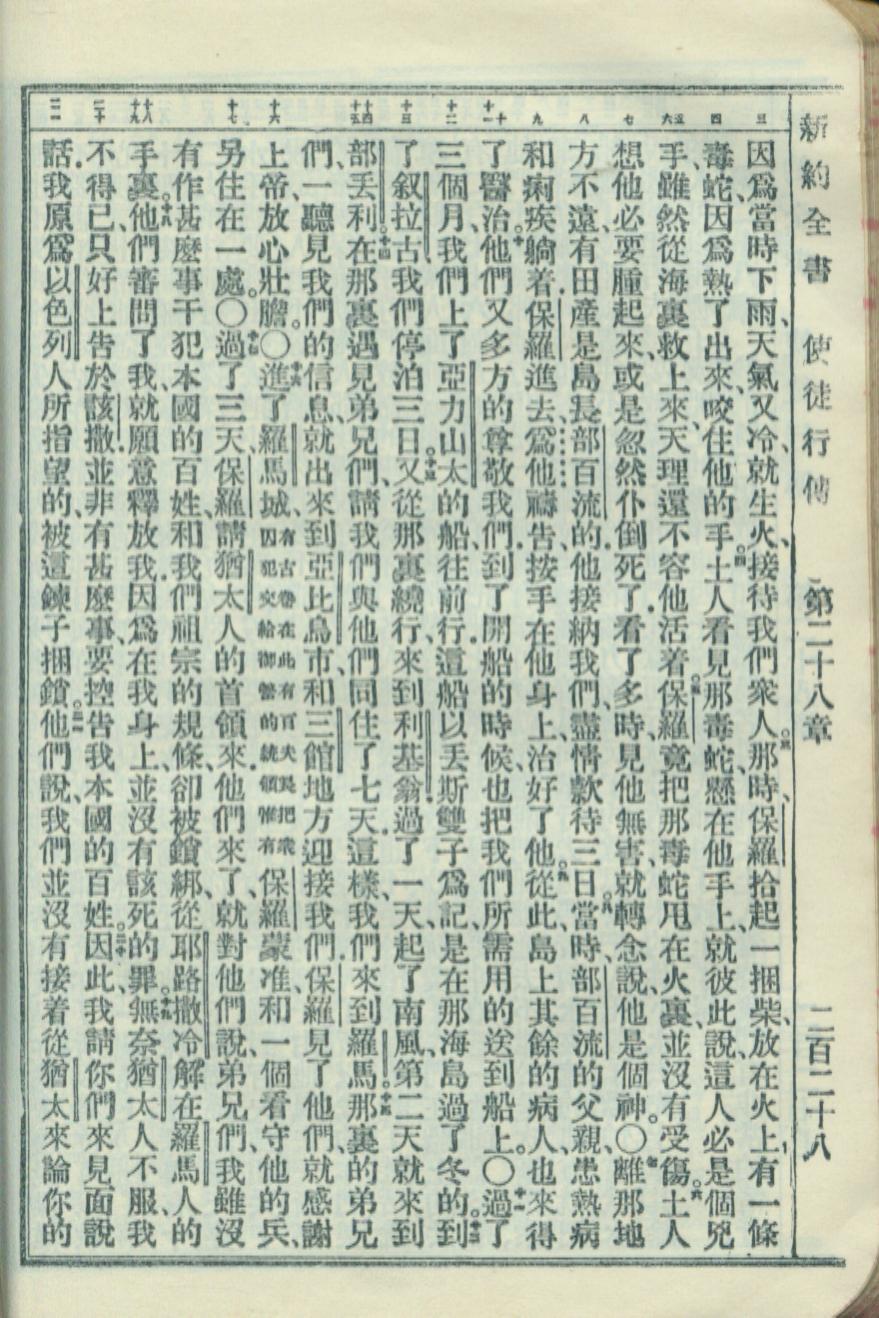 新約全書 使徒行傳 第二十八章 二百二十八
三 四 五 六 七 八 九 十 十一 十二 十三 十四 十五 十六 十七 十八 十九 二十 二一
因爲當時下雨、天氣又冷、就生火、接待我們衆人。三那時、保羅拾起一捆柴、放在火上、有一條
毒蛇、因爲熱了出來、咬住他的手。四土人看見那毒蛇、懸在他手上、就彼此說、這人必是個兇
手、雖然從海裏救上來、天理還不容他活着。五保羅竟把那毒蛇甩在火裏、並沒有受傷。六土人
想他必要腫起來、或是忽然仆倒死了、看了多時、見他無害、就轉念說、他是個神。〇七離那地
方不遠、有田產是島長部百流的、他接納我們、盡情款待三日。八當時、部百流的父親、患熱病
和痢疾躺着、保羅進去、爲他禱告、按手在他身上、治好了他。九從此、島上其餘的病人、也來得
了醫治。十他們又多方的尊敬我們、到了開船的時候、也把我們所需用的送到船上。〇十一過了
三個月、我們上了亞力山太的船、往前行、這船以丟斯雙子爲記、是在那海島過了冬的。十二到
了叙拉古、我們停泊三日。十三又從那裏繞行、來到利基翁、過了一天、起了南風、第二天就來到
部丢利。十四在那裏遇見弟兄們、請我們與他們同住了七天、這樣、我們來到羅馬。十五那裏的弟兄
們、一聽見我們的信息、就出來到亞比烏市、和三館地方迎接我們、保羅見了他們、就感謝
上帝、放心壯膽。〇十六進了羅馬城、有古卷在此有百夫長把衆囚犯交給御營的統領惟有保羅蒙准、和一個看守他的兵、
另住在一處。〇十七過了三天、保羅請猶太人的首領來、他們來了、就對他們說、弟兄們、我雖沒
有作甚麼事干犯本國的百姓、和我們祖宗的規條、卻被鎖綁、從耶路撒冷解在羅馬人的
手裏。十八他們審問了我、就願意釋放我、因爲在我身上、並沒有該死的罪。十九無奈猶太人不服、我
不得已、只好上告於該撒、並非有甚麼事、要控告我本國的百姓。二十因此、我請你們來見面說
話、我原爲以色列人所指望的、被這鍊子捆鎖。二一他們說、我們並沒有接着從猶太來論你的